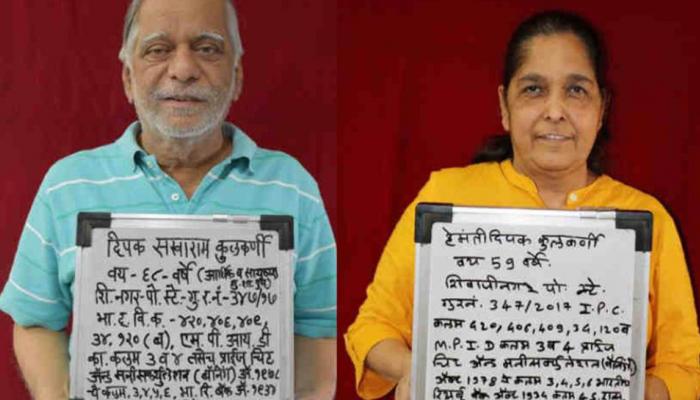 दिपक सखाराम कुलकर्णी
वय - ६८ - वर्षे (आर्थिक व सायबर
गु. शा. पुणे)
शि. नगर - पो. स्टे - गु. र. नं - ३४७/१७
भा. द. वि. क. - ४२०, ४०६, ४०९,
३४, १२० (ब), एम. पी. आय. डी
का. कलम ३ व ४ तसेच प्राईज चिट
अँण्ड मनीसर्क्युलेशन (बॅनिंग) अॅ. १९७८
चे कलम, ३, ४, ५, ६, भा. रि. बँक अॅ. १९३४
हेमंती दिपक कुलकर्णी
वय 59 वर्षे.
शिवाजीनगर पो. स्टे.
गुरनं. 347/2017 I.P.C.
कलम 420, 406, 409, 34, 120ब
M.P.I.D कलम 3 व 4 प्राईज
चिट अँन्ड मनीसर्क्युलेशन (बॅनिंग)
अॅक्ट 1978 चे कलम 3, 4, 5, 6 भारतीय
रिझर्व्ह बँक अॅक्ट 1934 कलम 45,